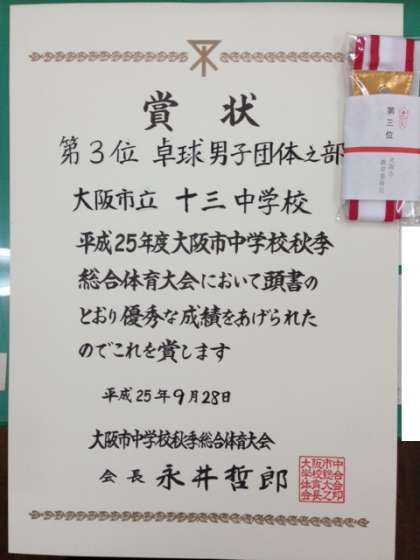 賞状
第3位 卓球男子団体之部
大阪市立 十三中学校
平成25年度大阪市中学校秋季
総合体育大会において頭書の
とおり優秀な成績をあげられた
のでこれを賞します
平成25年9月28日
大阪市中学校秋季総合体育大会
会長 永井哲郎
第三位